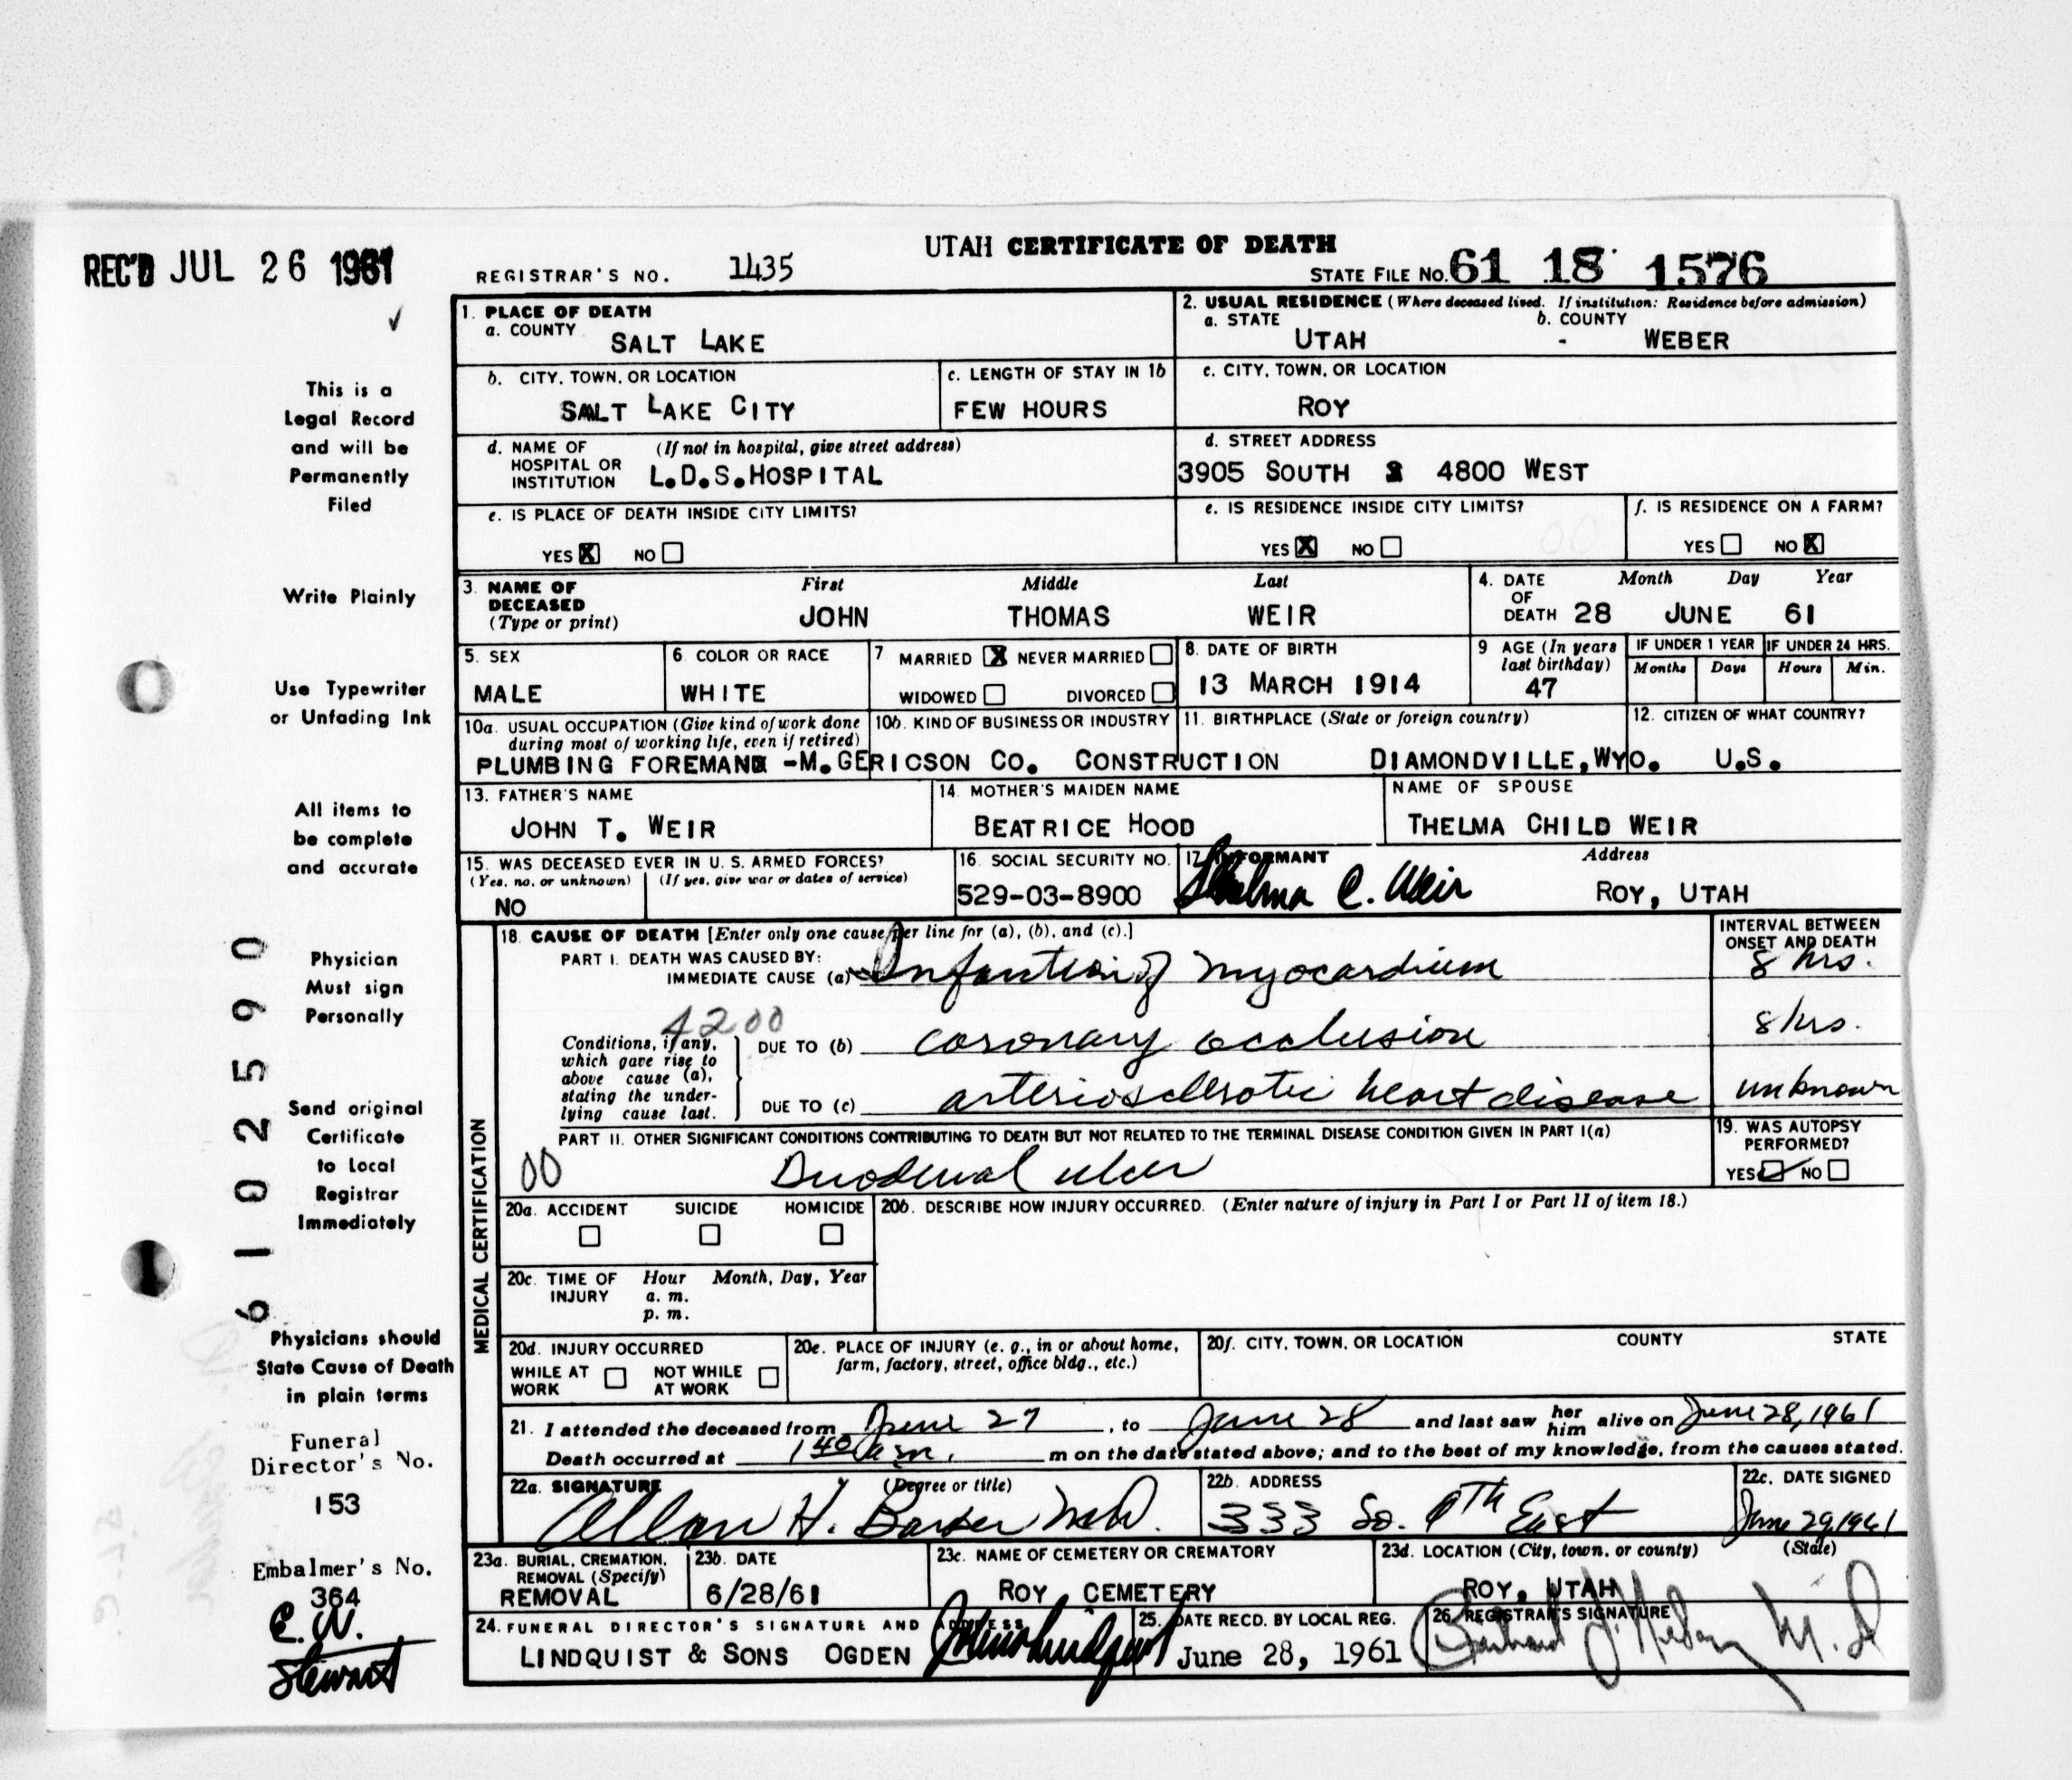 UTAH CERTIFICATE OF DEATH
REC'D JUL 26 1961
REGISTRAR'S NO. 1435
STATE FILE NO. 61 18 1576
This is a
Legal Record
and will be
Permanently
Filed
Write Plainly
Use Typewriter
or Unfading Ink
All items to
be complete
and accurate
Physician
Must sign
Personally
Send original
Certificate
to Local
Registrar
Immediately
Physicians should
State Cause of Death
in plain terms
Funeral
Director's No.
153
Embalmer's No.
364
E. W.
Stewart
6102590
1. PLACE OF DEATH
a. COUNTY
SALT LAKE
2. USUAL RESIDENCE (Where deceased lived. If institution: Residence before admission)
a. STATE b. COUNTY
UTAH - WEBER
b. CITY, TOWN, OR LOCATION
SALT LAKE CITY
c. LENGTH OF STAY IN 1b
FEW HOURS
c. CITY, TOWN, OR LOCATION
ROY
d. NAME OF HOSPITAL OR INSTITUTION (If not in hospital, give street address)
L.D.S.HOSPITAL
d. STREET ADDRESS
3905 SOUTH 4800 WEST
e. IS PLACE OF DEATH INSIDE CITY LIMITS?
YES X NO
e. IS RESIDENCE INSIDE CITY LIMITS?
YES X NO
f. IS RESIDENCE ON A FARM?
YES NO X
3. NAME OF DECEASED (Type or print)
First Middle Last
JOHN THOMAS WEIR
4. DATE OF DEATH Month Day Year
28 JUNE 61
5. SEX
MALE
6. COLOR OR RACE
WHITE
7 MARRIED X NEVER MARRIED
WIDOWED DIVORCED
8. DATE OF BIRTH
13 MARCH 1914
9 AGE (In years last birthday)
47
IF UNDER 1 YEAR IF UNDER 24 HRS.
Months Days Hours Min.
10a. USUAL OCCUPATION (Give kind of work done during most of working life, even if retired)
10b. KIND OF BUSINESS OR INDUSTRY
11. BIRTHPLACE (State or foreign country)
12. CITIZEN OF WHAT COUNTRY?
PLUMBING FOREMAN -M.GERICSON CO. CONSTRUCTION DIAMONDVILLE,WYO. U.S.
13. FATHER'S NAME
JOHN T. WEIR
14. MOTHER'S MAIDEN NAME
BEATRICE HOOD
NAME OF SPOUSE
THELMA CHILD WEIR
15. WAS DECEASED EVER IN U. S. ARMED FORCES?
(Yes, no, or unknown) (If yes, give war or dates of service)
NO
16. SOCIAL SECURITY NO.
529-03-8900
17. INFORMANT Address
Thelma C. Weir ROY, UTAH
MEDICAL CERTIFICATION
18. CAUSE OF DEATH [Enter only one cause per line for (a), (b), and (c).]
INTERVAL BETWEEN ONSET AND DEATH
PART I. DEATH WAS CAUSED BY:
IMMEDIATE CAUSE (a) Infarction of myocardium 8 hrs.
4200
Conditions, if any, which gave rise to above cause (a), stating the underlying cause last.
DUE TO (b) coronary occlusion 8 hrs.
DUE TO (c) arteriosclerotic heart disease unknown
PART II. OTHER SIGNIFICANT CONDITIONS CONTRIBUTING TO DEATH BUT NOT RELATED TO THE TERMINAL DISEASE CONDITION GIVEN IN PART I(a)
00 Duodenal ulcer
19. WAS AUTOPSY PERFORMED?
YES NO
20a. ACCIDENT SUICIDE HOMICIDE
20b. DESCRIBE HOW INJURY OCCURRED. (Enter nature of injury in Part I or Part II of item 18.)
20c. TIME OF INJURY Hour Month, Day, Year
a. m.
p. m.
20d. INJURY OCCURRED
WHILE AT WORK NOT WHILE AT WORK
20e. PLACE OF INJURY (e. g., in or about home, farm, factory, street, office bldg., etc.)
20f. CITY, TOWN, OR LOCATION COUNTY STATE
21. I attended the deceased from June 27, to June 28 and last saw her him alive on June 28, 1961
Death occurred at 1 40 a.m. m on the date stated above; and to the best of my knowledge, from the causes stated.
22a. SIGNATURE (Degree or title)
Allan H. Barker M.D.
22b. ADDRESS
333 So. 9th East
22c. DATE SIGNED
June 29, 1961
23a. BURIAL, CREMATION, REMOVAL (Specify)
REMOVAL
23b. DATE
6/28/61
23c. NAME OF CEMETERY OR CREMATORY
ROY CEMETERY
23d. LOCATION (City, town, or county) (State)
ROY, UTAH
24. FUNERAL DIRECTOR'S SIGNATURE AND ADDRESS
LINDQUIST & SONS OGDEN
25. DATE RECD. BY LOCAL REG.
June 28, 1961
26. REGISTRAR'S SIGNATURE
M.D.